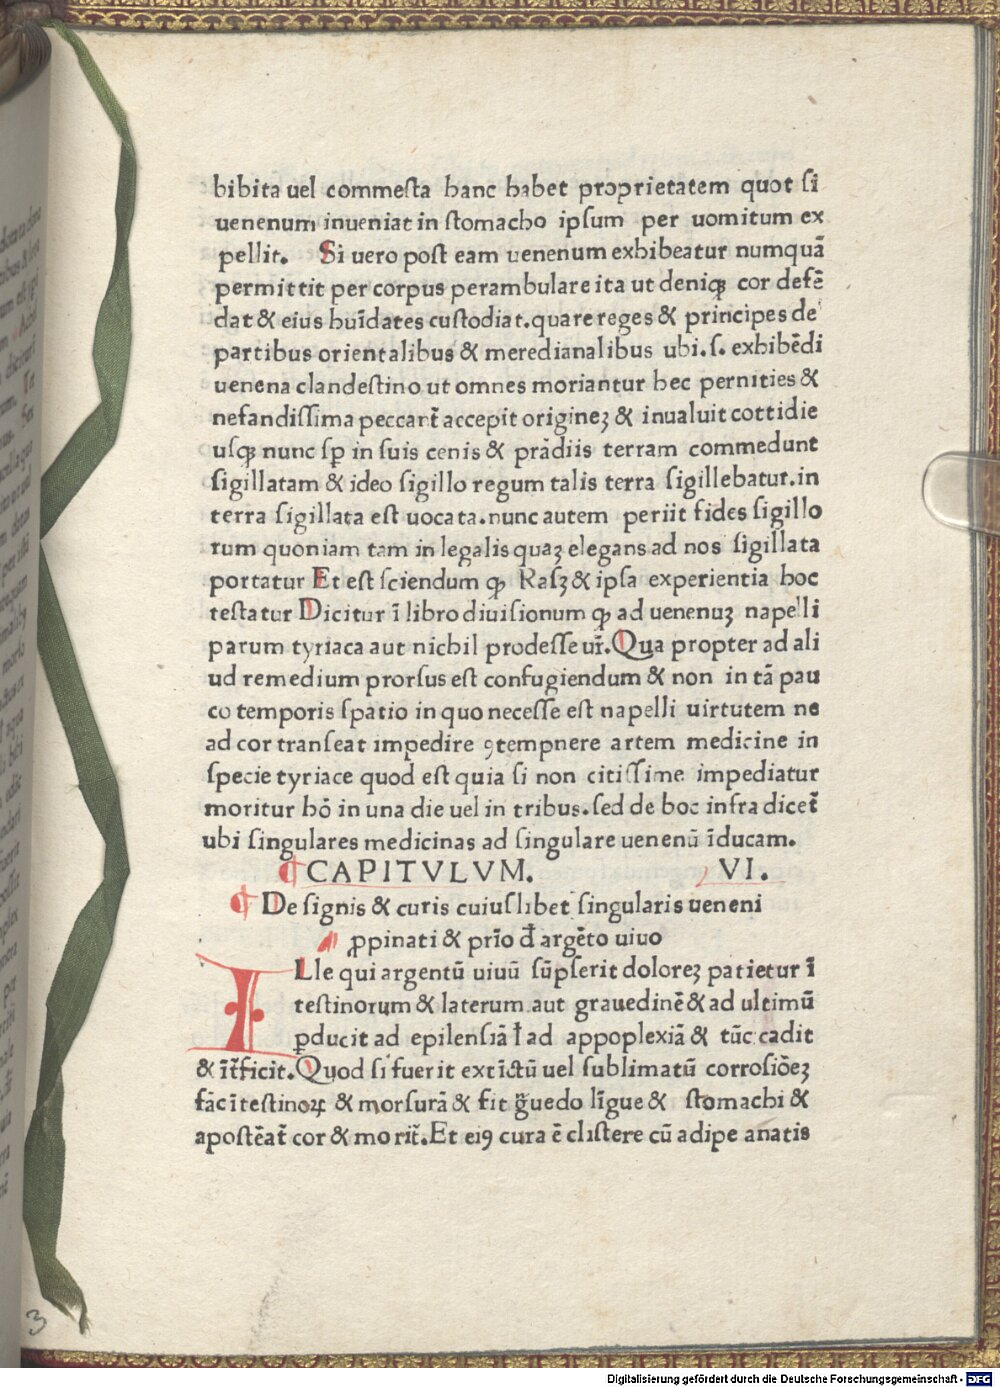 bibita uel commeſta hanc habet proprietatem quot ſi
uenenum inueniat in ſtomacho ipſum per uomitum ex
pellit. Si uero poſt eam uenenum exhibeatur numquā
permittit per corpus perambulare ita ut deniqꝫ cor defē
dat & eius huīdates cuſtodiat. quare reges & principes de
partibus orientalibus & meredianalibus ubi. ſ. exhibēdi
uenena clandeſtino ut omnes moriantur hec pernities &
nefandiſſima peccat̄ accepit origineꝫ & inualuit cottidie
uſqꝫ nunc ſꝑ in ſuis cenis & prādiis terram commedunt
ſigillatam & ideo ſigillo regum talis terra ſigillebatur. in
terra ſigillata eſt uocata. nunc autem periit fides ſigillo
rum quoniam tam in legalis quaꝫ elegans ad nos ſigillata
portatur Et est ſciendum qꝫ Raſꝫ & ipſa experientia hoc
teſtatur Dicitur ī libro diuiſionum qꝫ ad uenenuꝫ napelli
parum tyriaca aut nichil prodeſſe ur̄. Qua propter ad ali
ud remedium prorſus est confugiendum & non in tā pau
co temporis ſpatio in quo neceſſe est napelli uirtutem ne
ad cor tranſeat impedire ꝯtempnere artem medicine in
ſpecie tyriace quod est quia ſi non citiſſime impediatur
moritur hō in una die uel in tribus. ſed de hoc infra dicet̄
ubi ſingulares medicinas ad ſingulare uenenū īducam.
¶ CAPITVLVM. VI.
¶ De ſignis & curis cuiuſlibet ſingularis ueneni
ꝓpinati & prīo đ argēto uiuo
ILle qui argentū uiuū ſūpſerit doloreꝫ patietur ī
teſtinorum & laterum aut grauedinē & ad ultimū
ꝑducit ad epilenſiā ł ad appoplexiā & tūc cadit
& īt̄ficit. Quod ſi fuerit extīctū uel ſublimatū corroſiōeꝫ
fāc īteſtinoꝝ & morſurā & fit g̃uedo līgue & ſtomachi &
apoſtēat̄ cor & morit̄. Et eiꝯ cura ē cliſtere cū adipe anatis
3
Digitalisierung gefördert durch die Deutsche Forschungsgemeinschaft - DFG